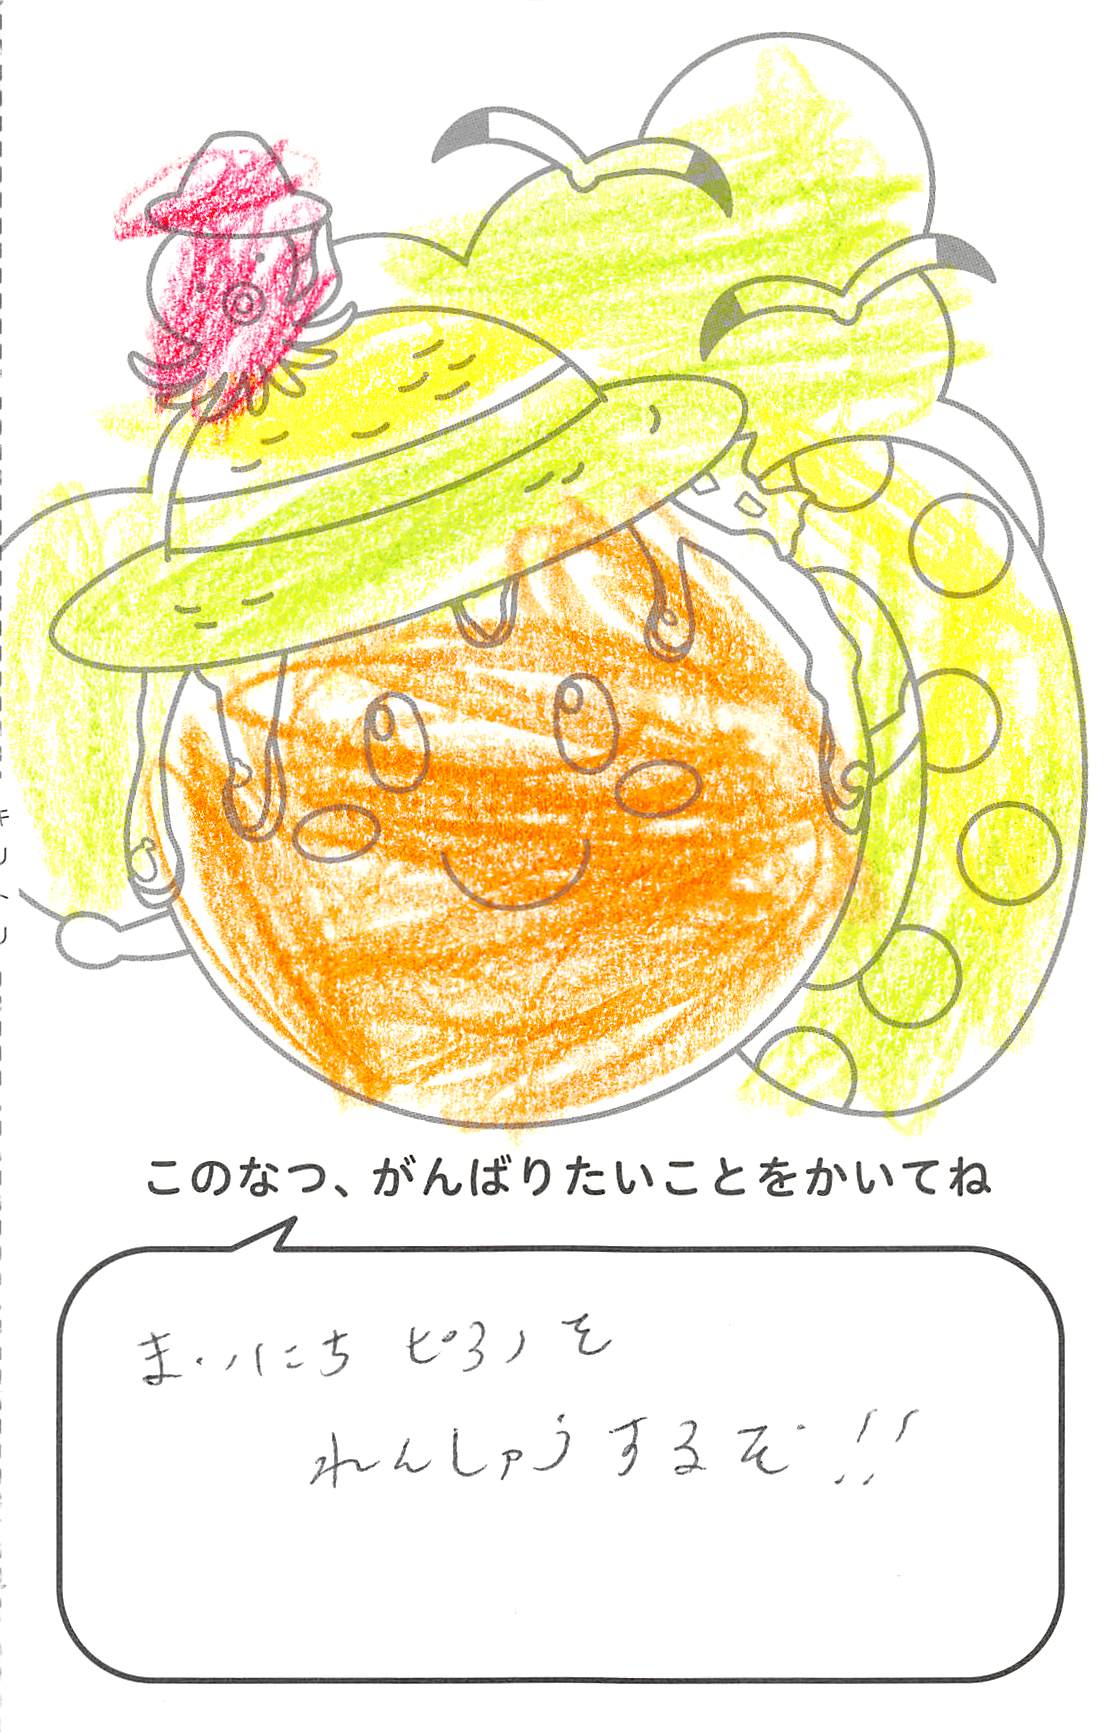 このなつ、がんばりたいことをかいてね
まいにち ピアノを
れんしゅうするぞ!!